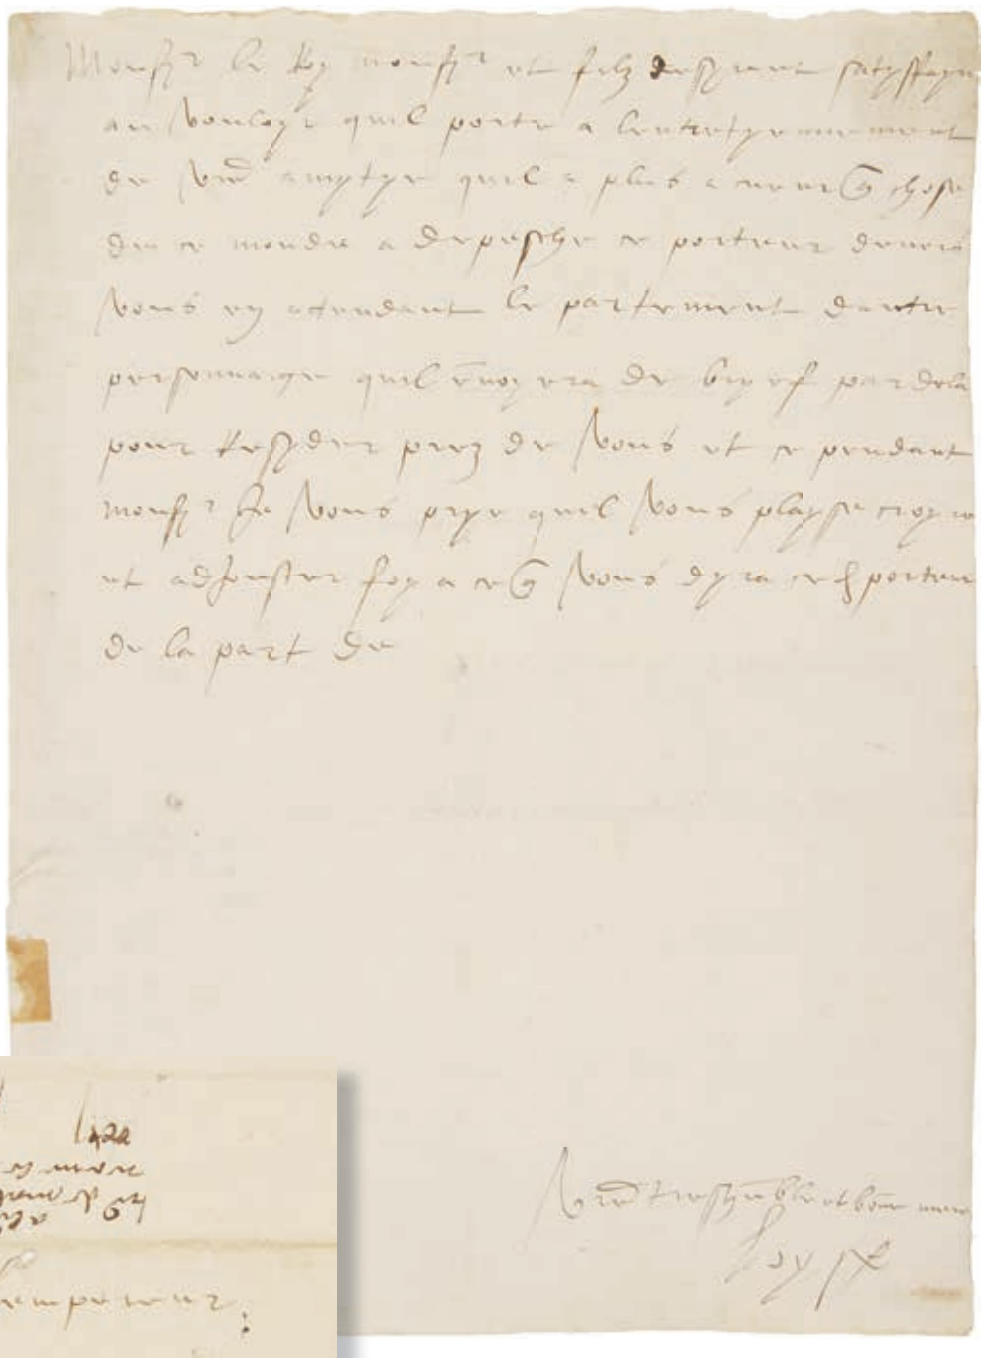 Monsr le Roy monsr et filz desyrant satysfayre
au vouloyr quil porte a lentretyennement
de vre amytye quil a plus a cueur que chose
de ce monde a depesche ce porteur devers
vous en atendant le partement dautre
personnaige quil envoyera de bryef par dela
pour Resyder prez de vous et ce pendant
monsr Je vous prye quil vous playse croyre
et adjouster foy a ce que vous dyra ced porteur
de la part de
Vre treshumble et bonne mere
Loyse
lempereur